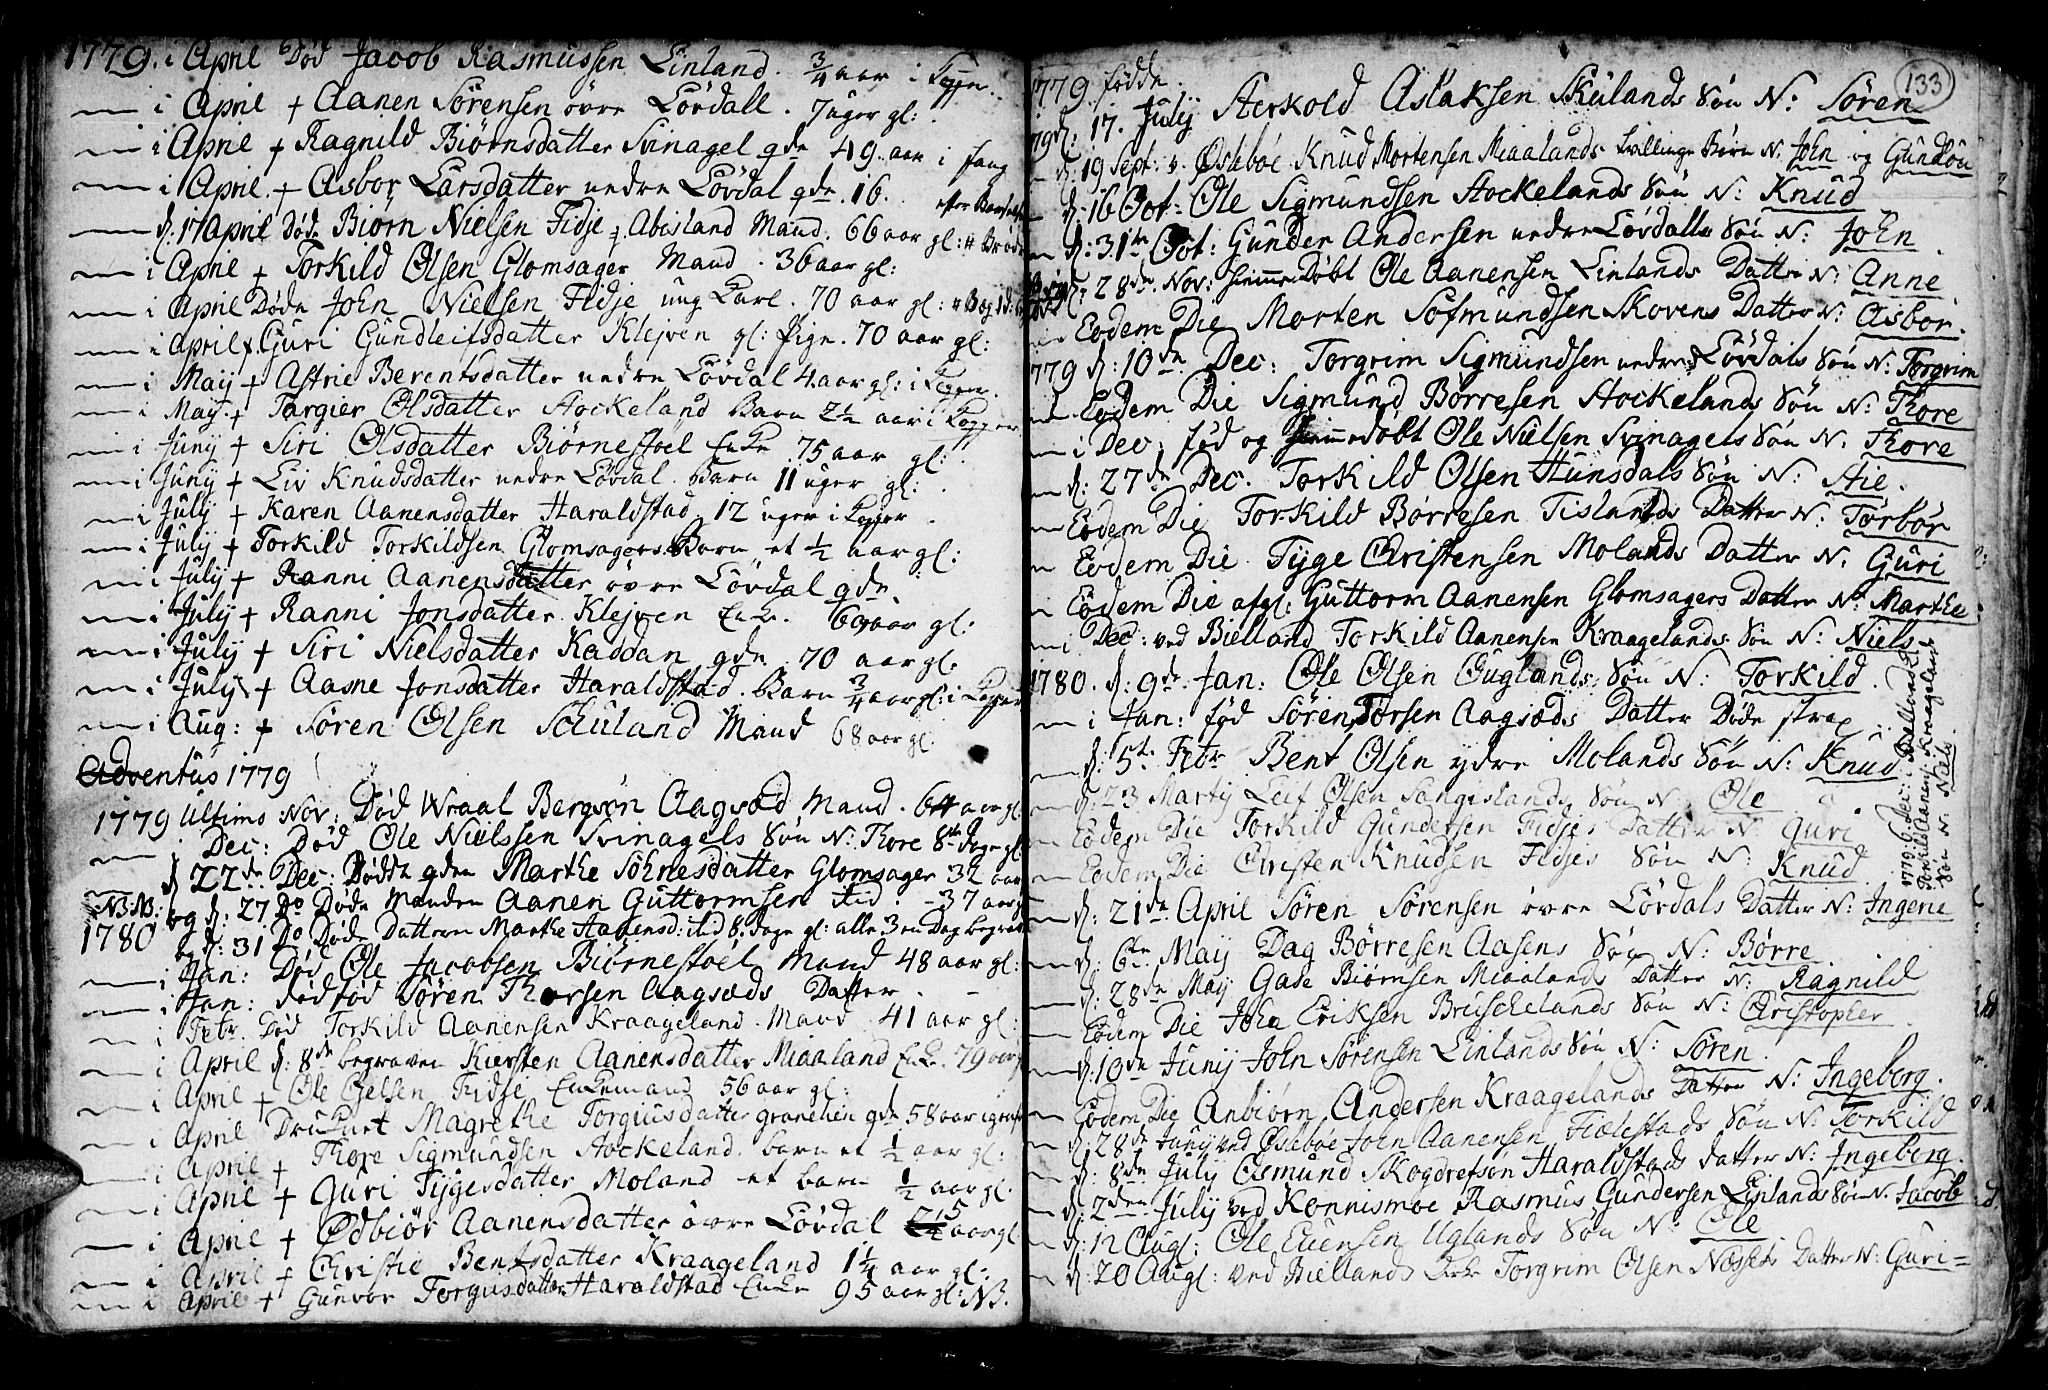 1779. i April Død Jacob Rasmussen Linland. 3/4 aar i Kopper.
— i April + Aanen Sörensen övre Lövdall. 7 uger gl:
— i April + Ragnild Biörnsdatter Svinagel gde 49 aar i Sæng
— i April. + Asbor Larsdatter nedre Lövdal gde. 16.
— d: 17 April Døde Biørn Nielsen Fidje Abisland Mand. 66 aar gl:
— i April + Torkild Olsen Glomsager Mand. 36 aar gl:
— i April Døde John Nielsen Fidje ung Karl. 70 aar gl:
— i April + Guri Gundleifsdatter Klejven gl: Pige. 70 aar gl:
— i May + Astrie Berentsdatter nedre Lövdal 4 aar gl: i Kopper.
— i May + Targier Olsdatter Stockeland Barn 2 1/2 aar i Kopper
— i Juny + Siri Olsdatter Biørnestoel Enke 75 aar gl:
— i Juny + Liv Knudsdatter nedre Lövdal. Barn 11 uger gl:
— i July + Karen Aanensdatter Haraldstad. 12 uger i Kopper.
— i July + Torkild Torkildsen Glomsagers Barn et 1/2 aar gl:
— i July + Ranni Aanensdatter övre Lövdal gde.
— i July + Ranni Jonsdatter Klejven Enke. 69 aar gl:
— i July + Siri Nielsdatter Kaddan gde 70 aar gl:
— i July + Aasne Jonsdatter Haraldstad. Barn 3/4 aar gl: i Kopper
— i Aug: + Søren Olsen Schuland Mand 68 aar gl:
Adventus 1779
1779 Ultimo Nov: Død Wraal Bergsøn Aagsæd Mand. 64 aar gl
— i Dec: Død Ole Nielssen Svinagels Søn N: Thore 8te dage gl
d 22de Dec: Døde gden Marthe Sohnesdatter Glomsager 32 aar
NB: NB: og d: 27 Do Døde Manden Aanen Guttormsen ibid. - 37 aar
1780 og d: 31 Do Døde Datteren Marthe Aanensd: ibid 8. dage gl: alle 3 en Dag begravne
— i Jan: Død Ole Jacobsen Biörnestöel Mand 48 aar gl:
— i Jan: dødfød Søren Thorsen Aagsæds Datter.
— i Febr. Død Torkild Aanensen Kraageland. Mand 41 aar gl:
— i April d: 8de begraven Kiersten Aanensdatter Miaaland Enke. 79 aar
— i April + Ole Gelsen Fidje Enkemand 56 aar gl:
— i April Druknet Magrethe Torgiusdatter gde 58 aar
— i April + Thore Sigmundsen Stockeland. barn et 1/2 aar gl:
— i April + Guri Tygesdatter Moland et barn 1/2 aar gl:
— i April + Ødbiör Aanensdatter övre Lövdal 25 aar gl
— i April + Christie Bentsdatter Kraageland 1 1/4 aar gl:
— i April + Gunvor Torgusdatter Haraldstad Enke 95 aar gl: NB.
133
1779. fødde
d: 17. July Sterkold Aslaksen Skulands Søn N: Søren
d: 19 Sept: v. Øslebøe Knud Mortensen Miaalands tvillinge Børn N. John og Gundlou
d: 16 Oct: Ole Sigmundsen Stockelands Søn N: Knud
d: 31te Oct: Gunder Andersen nedre Lövdalls Søn N: John.
d: 28de Nov: hiemmedøbt Ole Aanensen Linlands Datter N: Anne
Eodem Die Morten Sofmundsen Skovens Datter N: Asbor.
1779 d: 10de Dec: Torgrim Sigmundsen nedre Lövdals Søn N: Torgrim
Eodem Die Sigmund Børresen Stockelands Søn N: Thore
— i Dec: fød og hiemmedøbt Ole Nielsen Svinagels Søn N: Thore
d: 27de Dec. Torkild Olsen Hunsdals Søn N: Atle.
Eodem Die Torkild Børresen Tislands Datter N: Torbør
Eodem Die. Tyge Christensen Molands Datter N: Guri
Eodem Die afgl: Guttorm Aanensen Glomsagers Datter N: Marthe
— i Dec: ved Bielland Torkild Aanensen Kraagelands Søn N: Niels
1780. d: 9de Jan: Ole Olsen Øuglands Søn N: Torkild.
— i Jan: fød Søren Torsen Aagsæds Datter Døde strax
d: 5te Febr Bent Olsen ydre Molands Søn N: Knud
d: 23 Marty Leif Olsen Søn N: Ole
Eodem Die Torkild Gundersen Fidjes Datter N: Guri
Eodem Die Christen Knudsen Fidjes Søn N: Knud
d: 21de April Søren Sørensen øvre Lördals Datter N: Ingerie
d: 6te May Dag Børresen Aasens Søn N: Børre
d: 28de May Gase Biørnsen Miaalands Datter N: Ragnild
Eodem Die John Eriksen Bruschelands Søn N: Christopher
d: 10de Juny John Sørensen Linlands Søn N: Søren.
Eodem Die Anbiorn Andersen Kraagelands Datter N: Ingeborg.
d: 28de Juny ved Øslebøe John Aanensen Fiælestads Søn N: Torkild
d: 8de July Osmund Skogdrefsøn Haraldstads datter N: Ingeborg.
d: 2den July ved Konnismoe Rasmus Gundersen Linlands Søn N. Jacob
d: 12 Augl: Ole Evensen Uglands Søn N: Ole
d: 20 Augl: ved Biellands Kirke Torgrim Olsen Næssets Datter N: Guri =
1779. d: Dec: i Biellands K
Torkild Aanensen Kraagelands
Søn N: Niels.